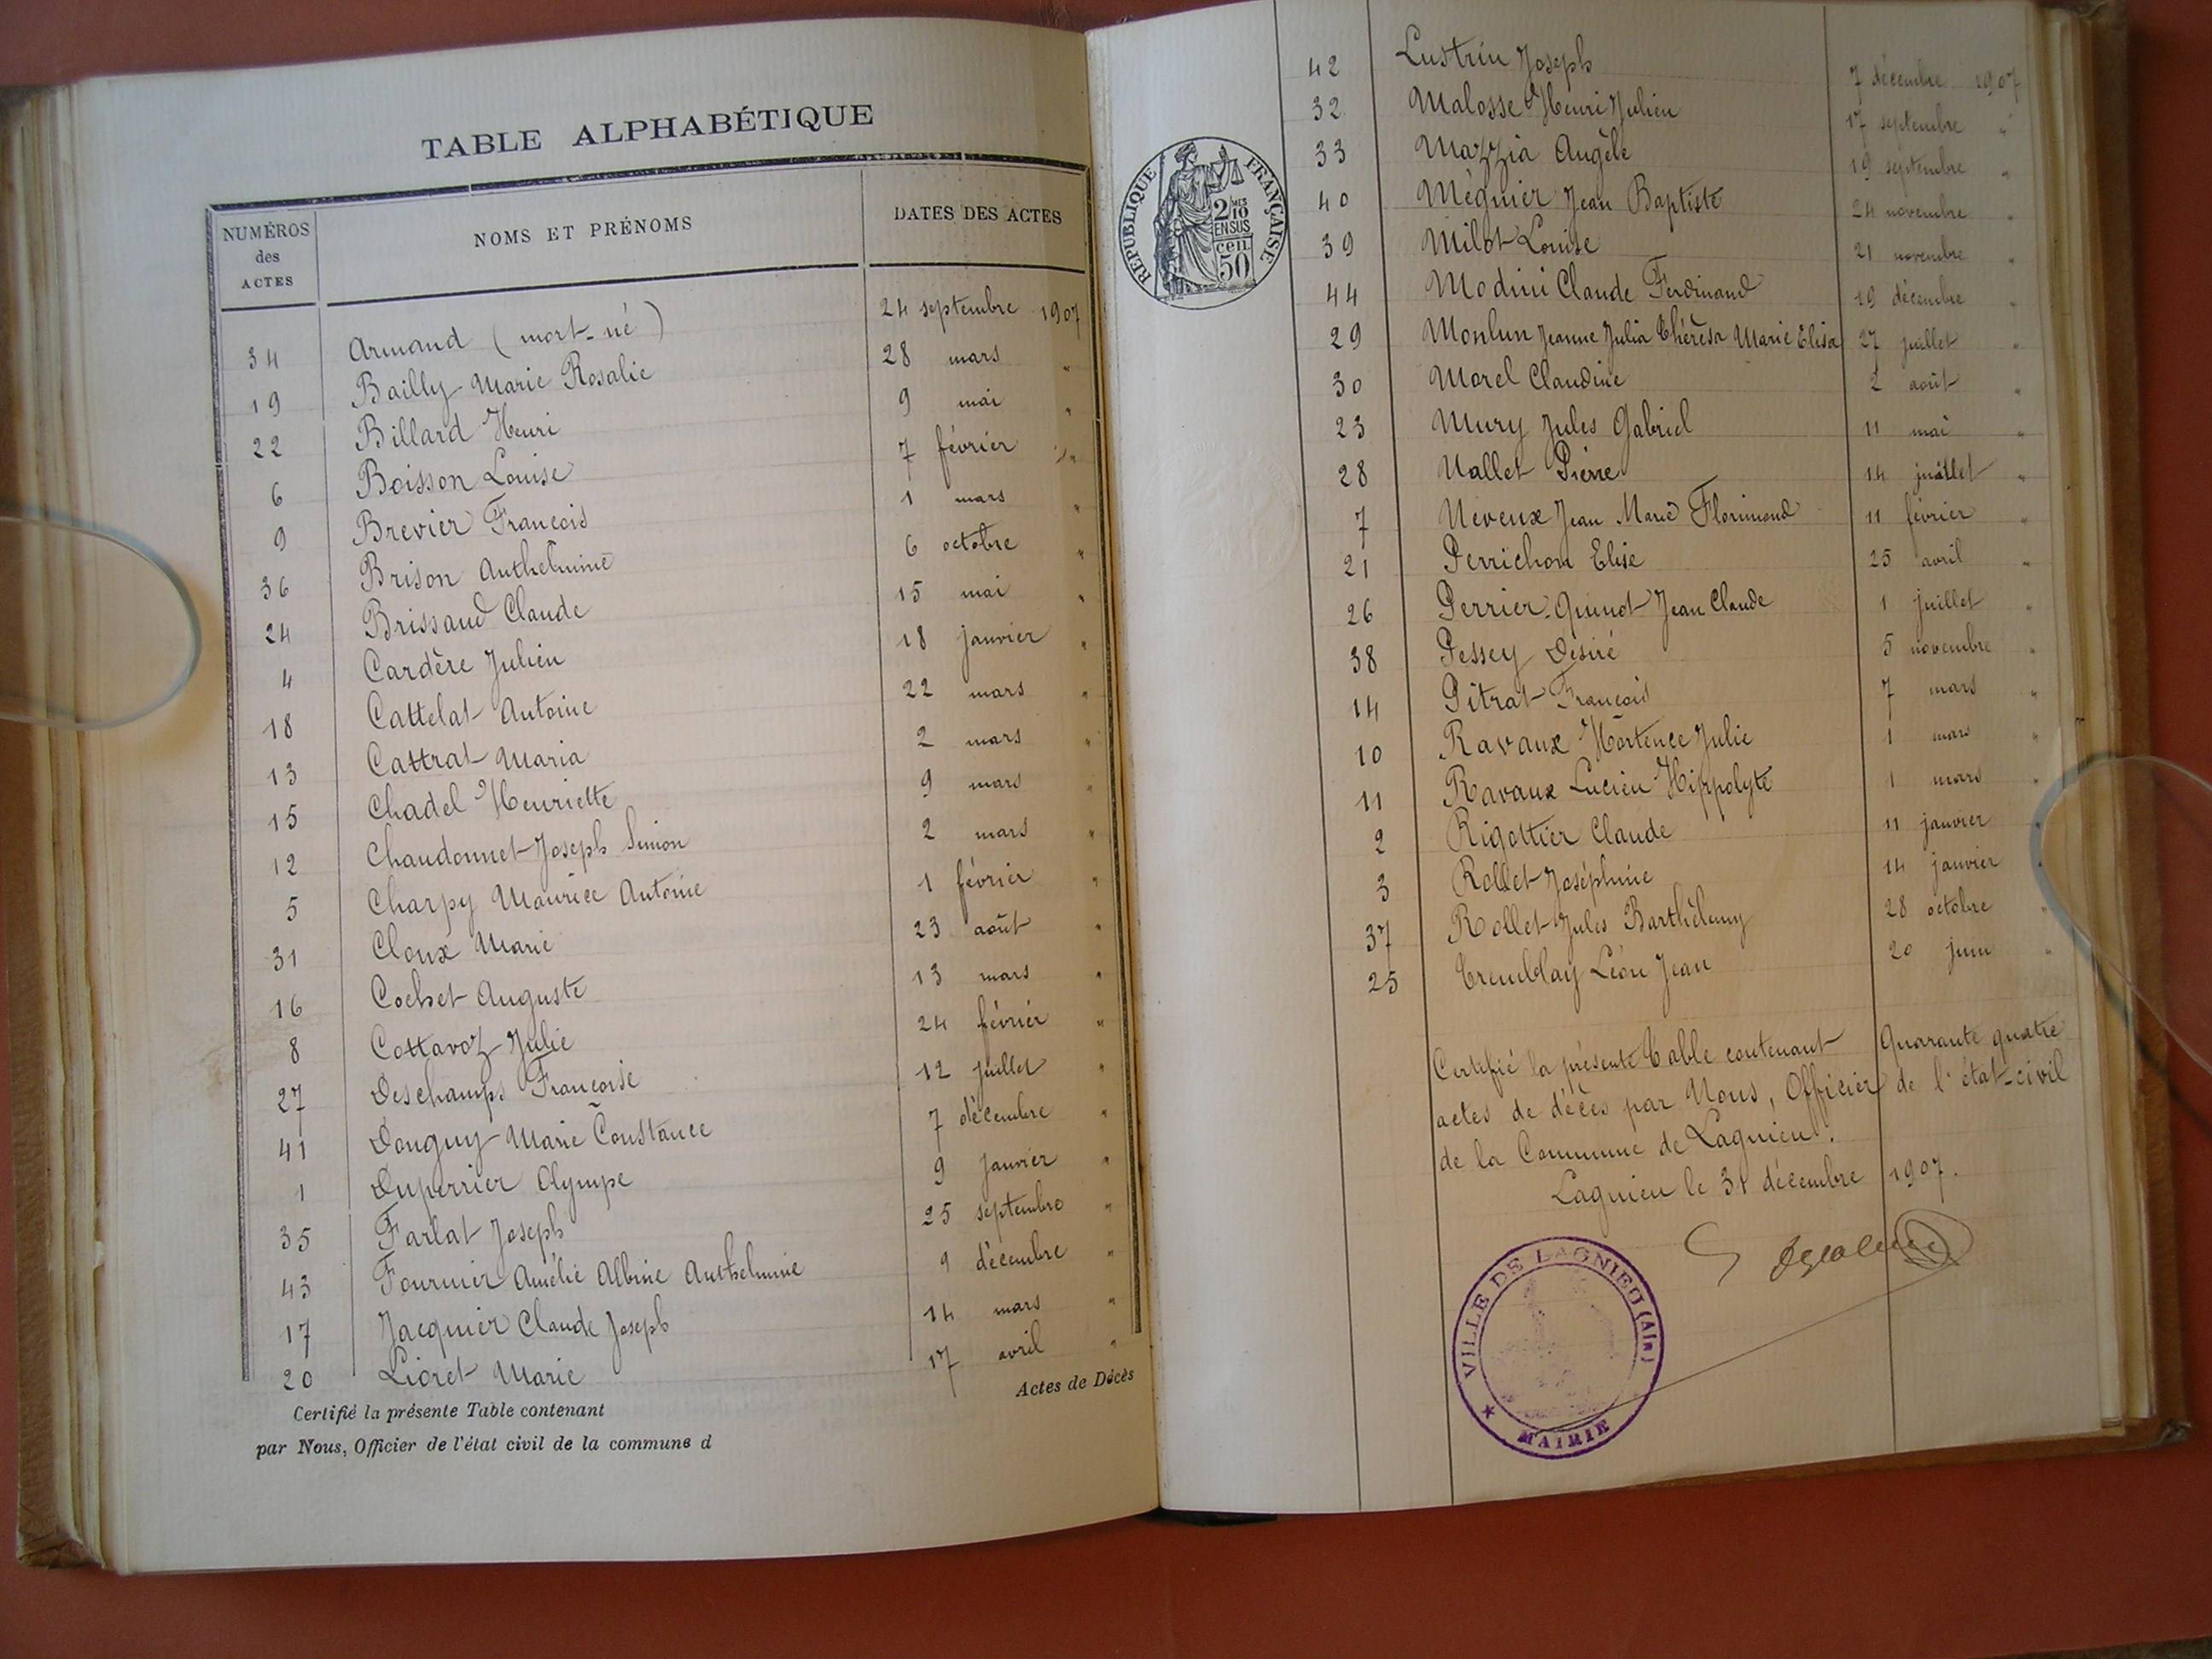 TABLE ALPHABÉTIQUE
NUMÉROS des ACTES NOMS ET PRÉNOMS DATES DES ACTES
34 Armand (mort-né) 24 septembre 1907
19 Bailly Marie Rosalie 28 mars "
22 Billard Henri 9 mai "
6 Boisson Louise 7 février "
9 Brevier François 1 mars "
36 Brison Anthelmine 6 octobre "
24 Brissaud Claude 15 mai "
4 Cardère Julien 18 janvier "
18 Cattelat Antoine 22 mars "
13 Cattrat Maria 2 mars "
15 Chadel Henriette 9 mars "
12 Chaudonnet Joseph Simon 2 mars "
5 Charpy Maurice Antoine 1 février "
31 Cloux Marie 23 août "
16 Cochet Auguste 13 mars "
8 Cottavoz Julie 24 février "
27 Deschamps Françoise 12 juillet "
41 Douguy Marie Constance 7 décembre "
1 Duperrier Olympe 9 janvier "
35 Farlat Joseph 25 septembre "
43 Fournier Amélie Albine Anthelmine 9 décembre "
17 Jacquier Claude Joseph 14 mars "
20 Lioret Marie 17 avril "
Certifié la présente Table contenant Actes de Décès
par Nous, Officier de l'état civil de la commune d
RÉPUBLIQUE FRANÇAISE
2 MES
10
EN SUS
cen
50
42 Lustrin Joseph 7 décembre 1907
32 Malosse Henri Julien 17 septembre "
33 Mazzia Angèle 19 septembre "
40 Mégnier Jean Baptiste 24 novembre "
39 Milot Louise 21 novembre "
44 Modini Claude Ferdinand 19 décembre "
29 Monlun Jeanne Julia Thérèsa Marie Elisa 27 juillet "
30 Morel Claudine 2 août "
23 Mury Jules Gabriel 11 mai "
28 Nallet Pierre 14 juillet "
7 Neveux Jean Marie Florimond 11 février "
21 Perrichon Elise 25 avril "
26 Perrier-Guinot Jean Claude 1 juillet "
38 Pessey Désiré 5 novembre "
14 Pitrat François 7 mars "
10 Ravaux Hortence Julie 1 mars "
11 Ravaux Lucien Hippolyte 1 mars "
2 Rigottier Claude 11 janvier "
3 Rollet Joséphine 14 janvier "
37 Rollet Jules Barthélemy 28 octobre "
25 Tremblay Léon Jean 20 juin "
Certifié la présente Table contenant Quarante quatre
actes de décès par Nous, Officier de l'état-civil
de la Commune de Lagnieu.
Lagnieu le 31 décembre 1907.
VILLE DE LAGNIEU (Ain)
★ MAIRIE